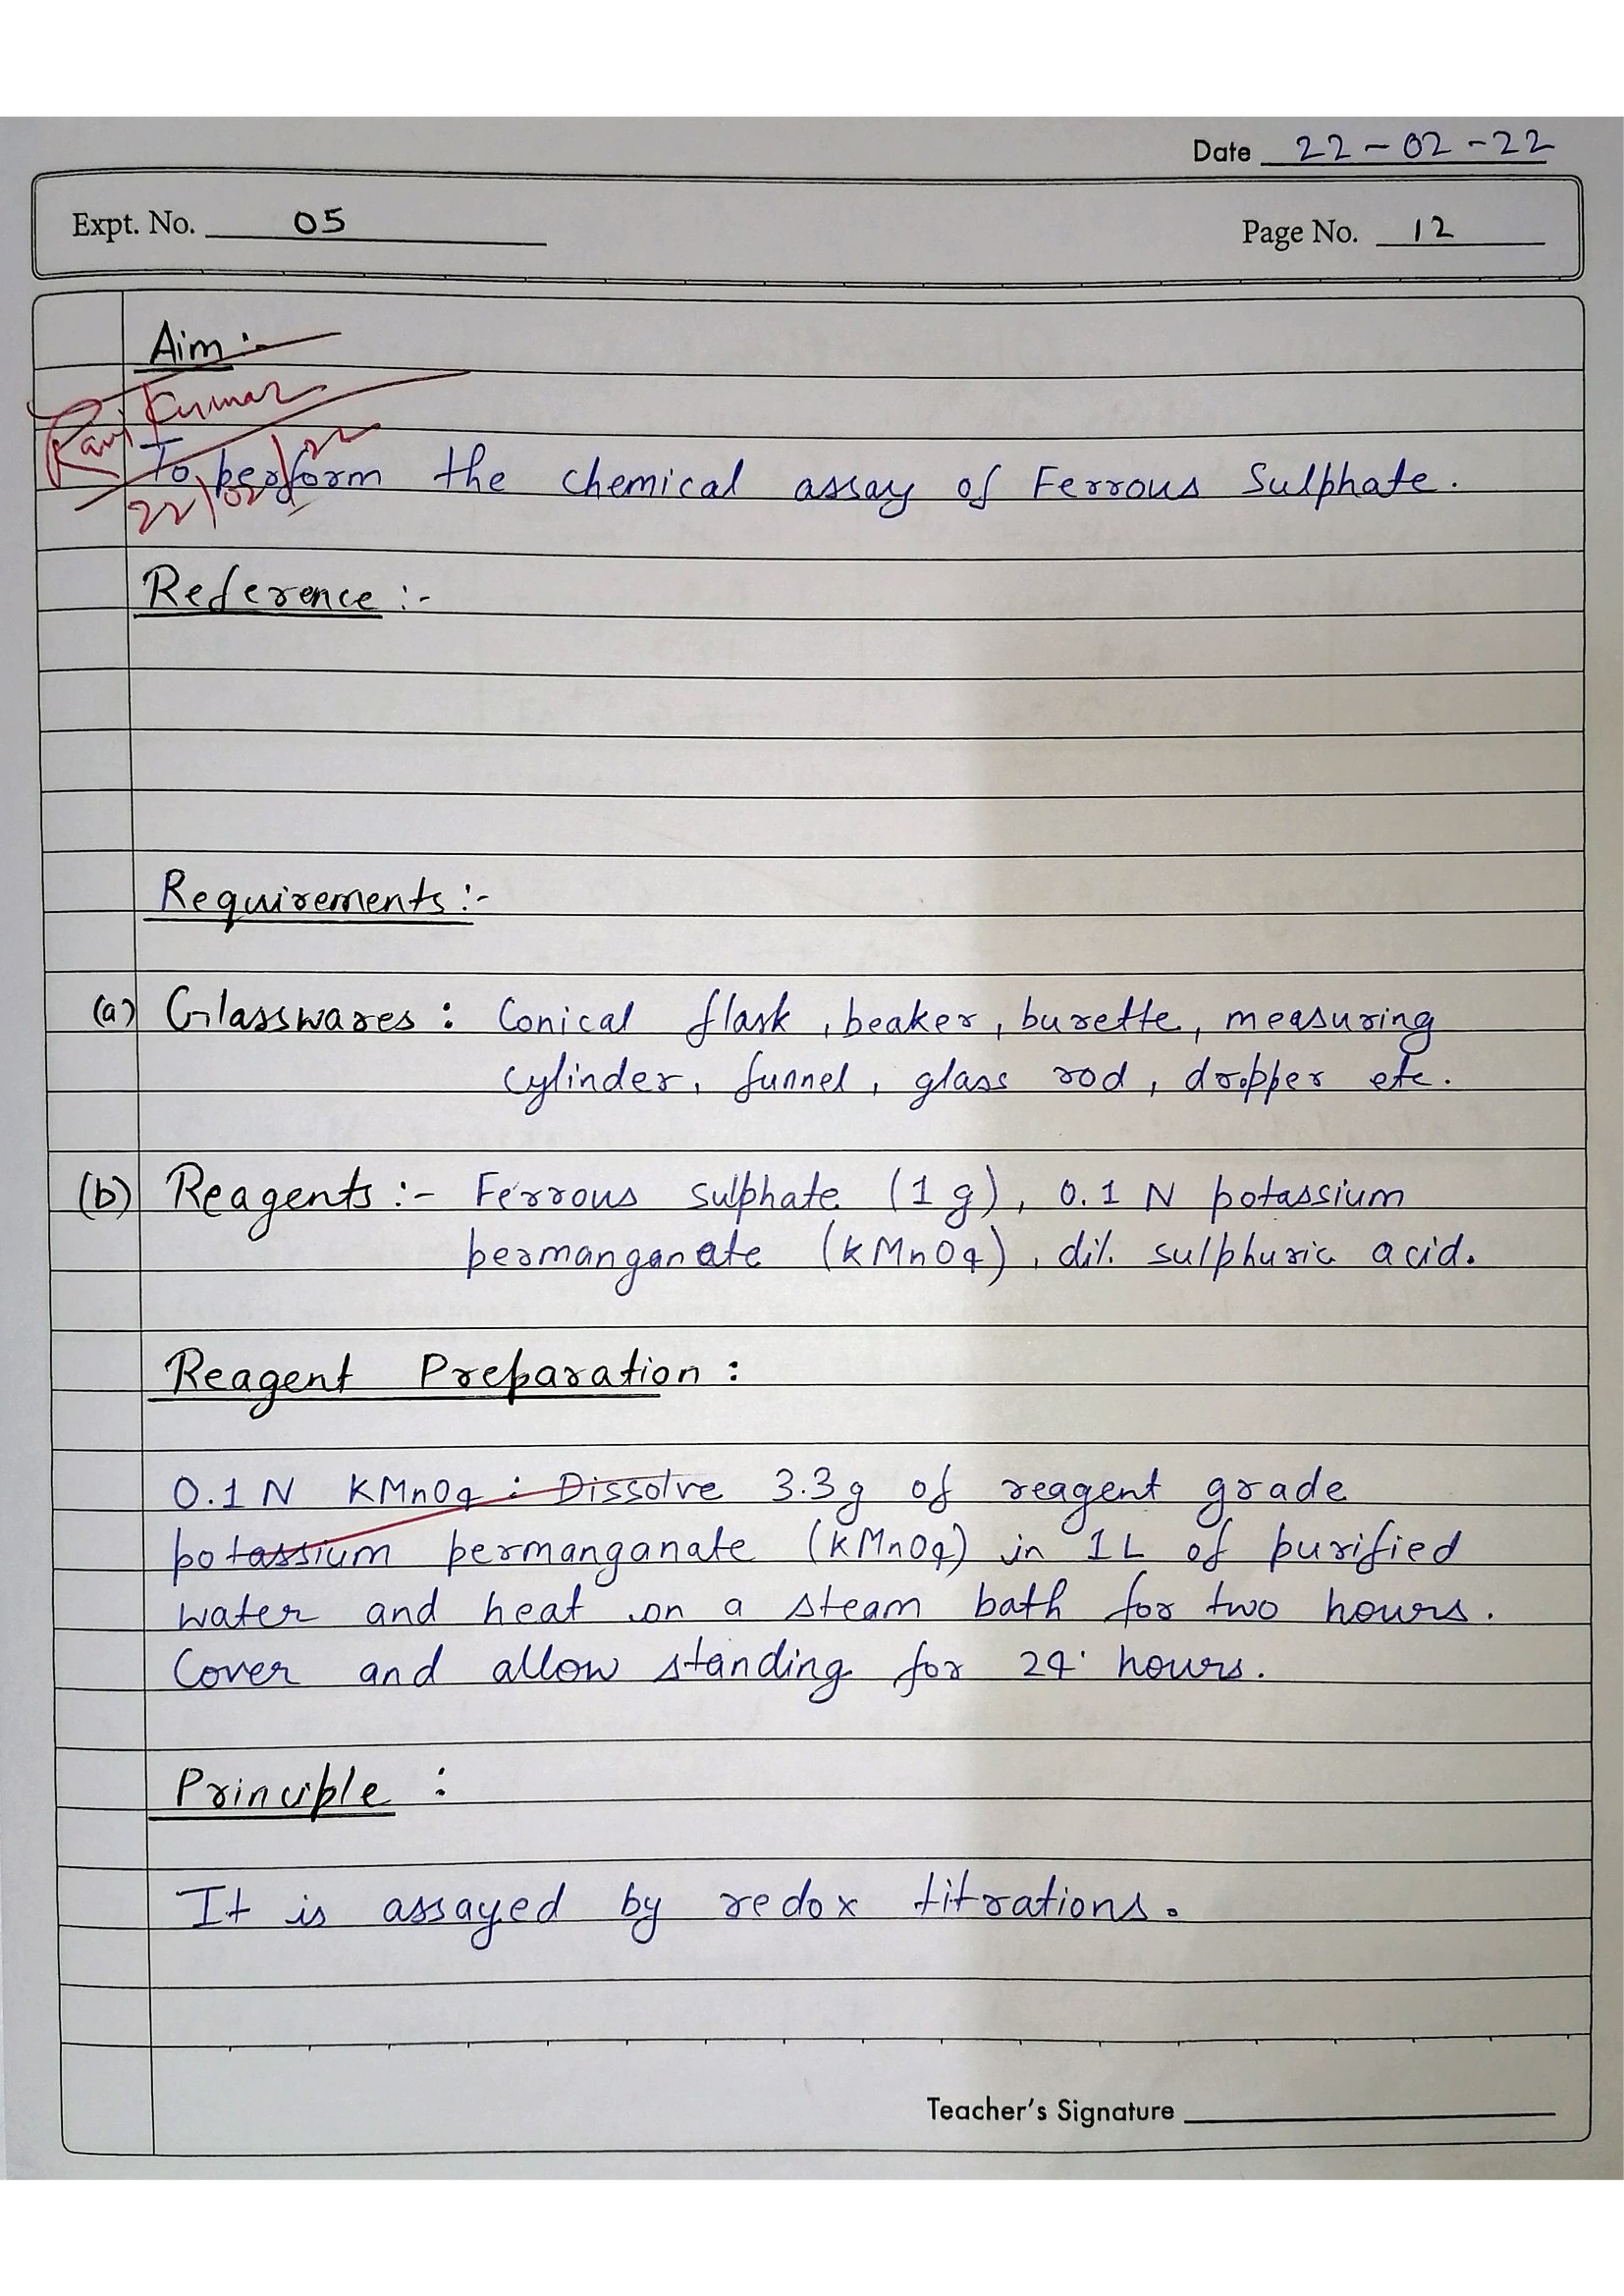 Date 22-02-22
Expt. No. 05
Page No. 12
Aim :-
Ravi Kumar
22/02/22
To perform the chemical assay of Ferrous Sulphate.
Reference :-
Requirements :-
(a) Glasswares : Conical flask, beaker, burette, measuring
cylinder, funnel, glass rod, dropper etc.
(b) Reagents :- Ferrous sulphate (1 g), 0.1 N potassium
permanganate (KMnO4), dil. sulphuric acid.
Reagent Preparation :
0.1 N KMnO4 : Dissolve 3.3g of reagent grade
potassium permanganate (KMnO4) in 1L of purified
water and heat on a steam bath for two hours.
Cover and allow standing for 24 hours.
Principle :
It is assayed by redox titrations.
Teacher's Signature